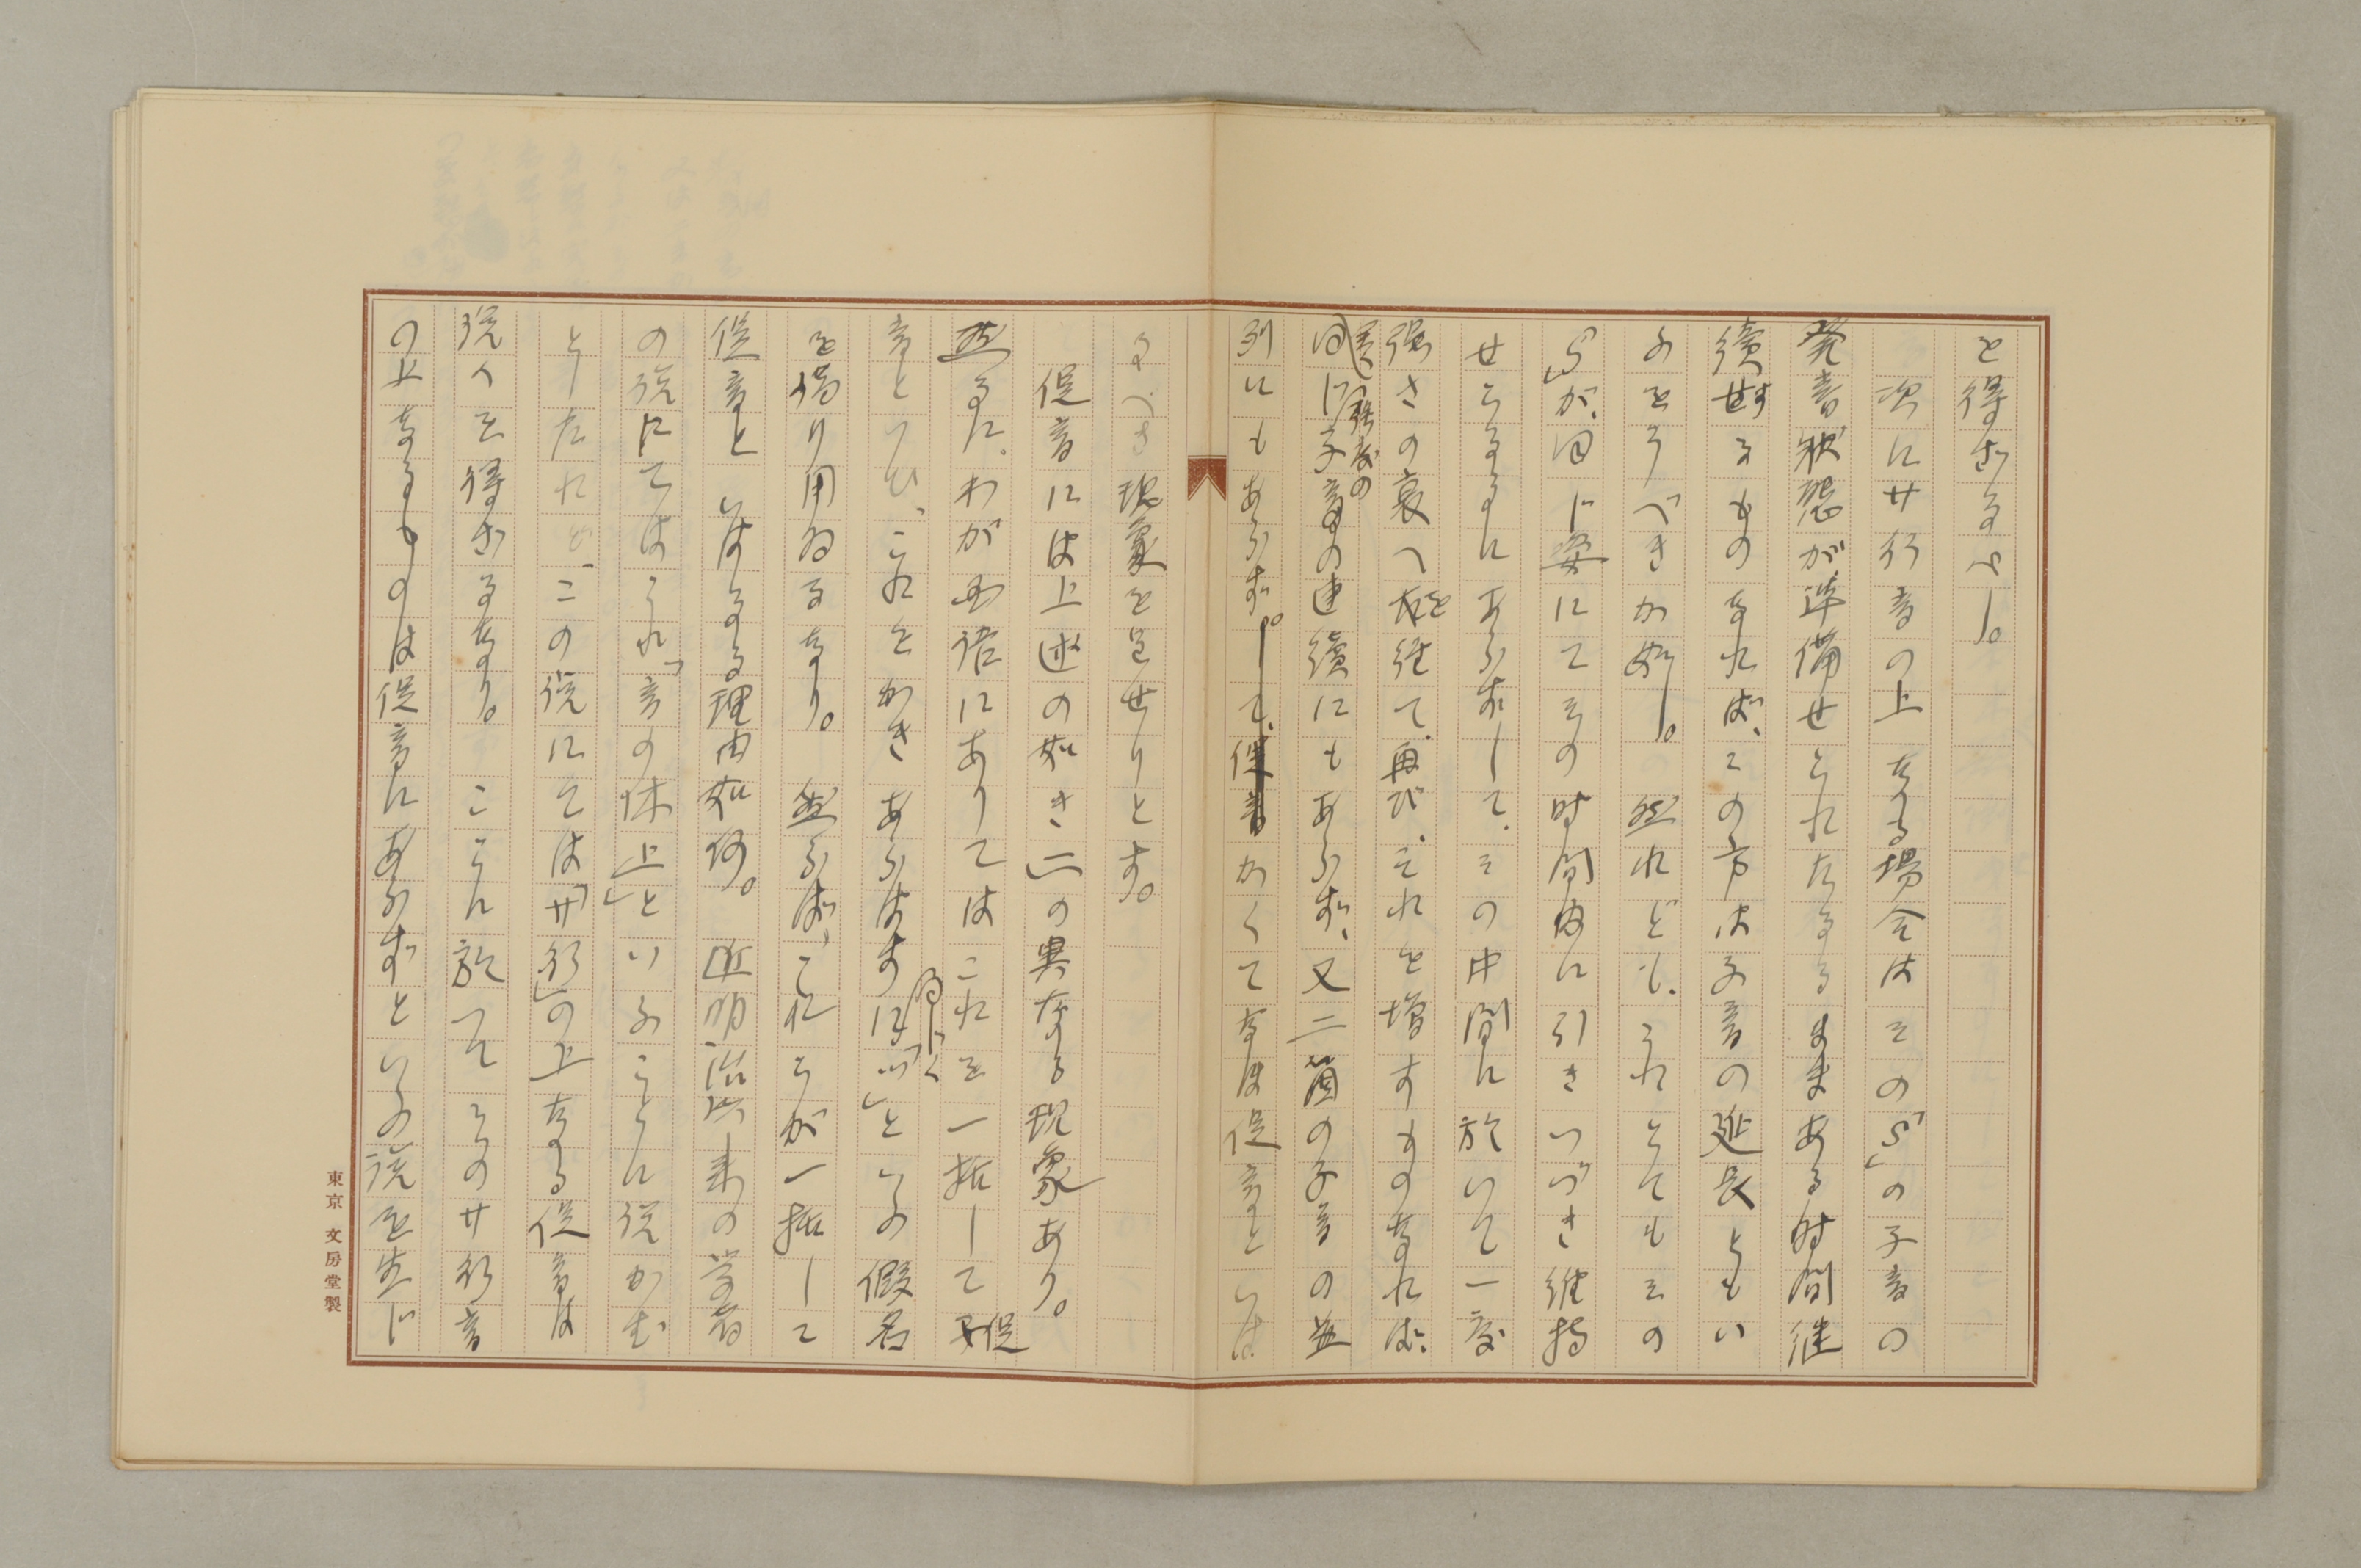 を得ざるべし。
次にサ行音の上なる場合はその「S」の子音の
発音状態が準備せられたるまゝある時間継
續するものなれば、この方は子音の延長ともい
ふをうべきか如し。然れども、これとてもその
「S」が、同じ姿にてその時間内に引きつづき維持
せらるるにあらずして、その中間に於いて一度
強さの衰へを経て、再び、それを増すものなれば、
同じ強度の子音の連續にもあらず、又二箇の子音の並
列にもあらず。かくてなほ促音といは
るべき現象を呈せりとす。
促音には上述の如き二の異なる現象あり。
然るに、わが国語にありてはこれを一括して促
音といひ、これをかきあらはすに同じく「ツ」といふ假名
を借り用ゐるなり。然らば、これらが一括して
促音といはるる理由如何。近明治以来の学者
の説にてはこれ「音の休止」といふことに説かむ
としたれど、この説にては「サ行」の上なる促音は
説くを得ざるなり。ここに於いてそのサ行音
の上なるものは促音にあらずといふ説を生じ
東京 文房堂製